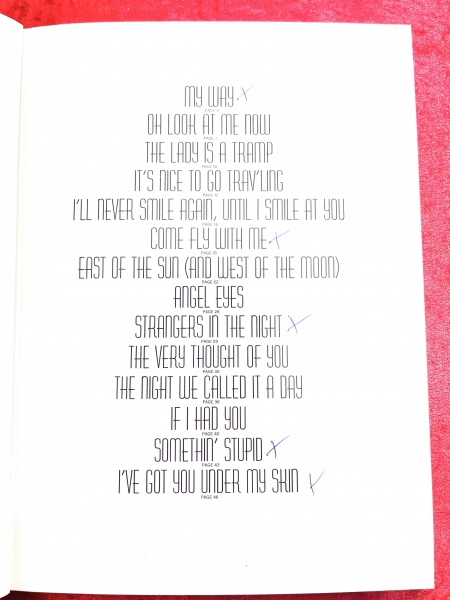 MY WAY x
PAGE 4
OH LOOK AT ME NOW
PAGE 7
THE LADY IS A TRAMP
PAGE 10
IT'S NICE TO GO TRAV'LING
PAGE 12
I'LL NEVER SMILE AGAIN, UNTIL I SMILE AT YOU
PAGE 16
COME FLY WITH ME x
PAGE 19
EAST OF THE SUN (AND WEST OF THE MOON)
PAGE 22
ANGEL EYES
PAGE 26
STRANGERS IN THE NIGHT x
PAGE 29
THE VERY THOUGHT OF YOU
PAGE 32
THE NIGHT WE CALLED IT A DAY
PAGE 36
IF I HAD YOU
PAGE 40
SOMETHIN' STUPID x
PAGE 43
I'VE GOT YOU UNDER MY SKIN x
PAGE 46